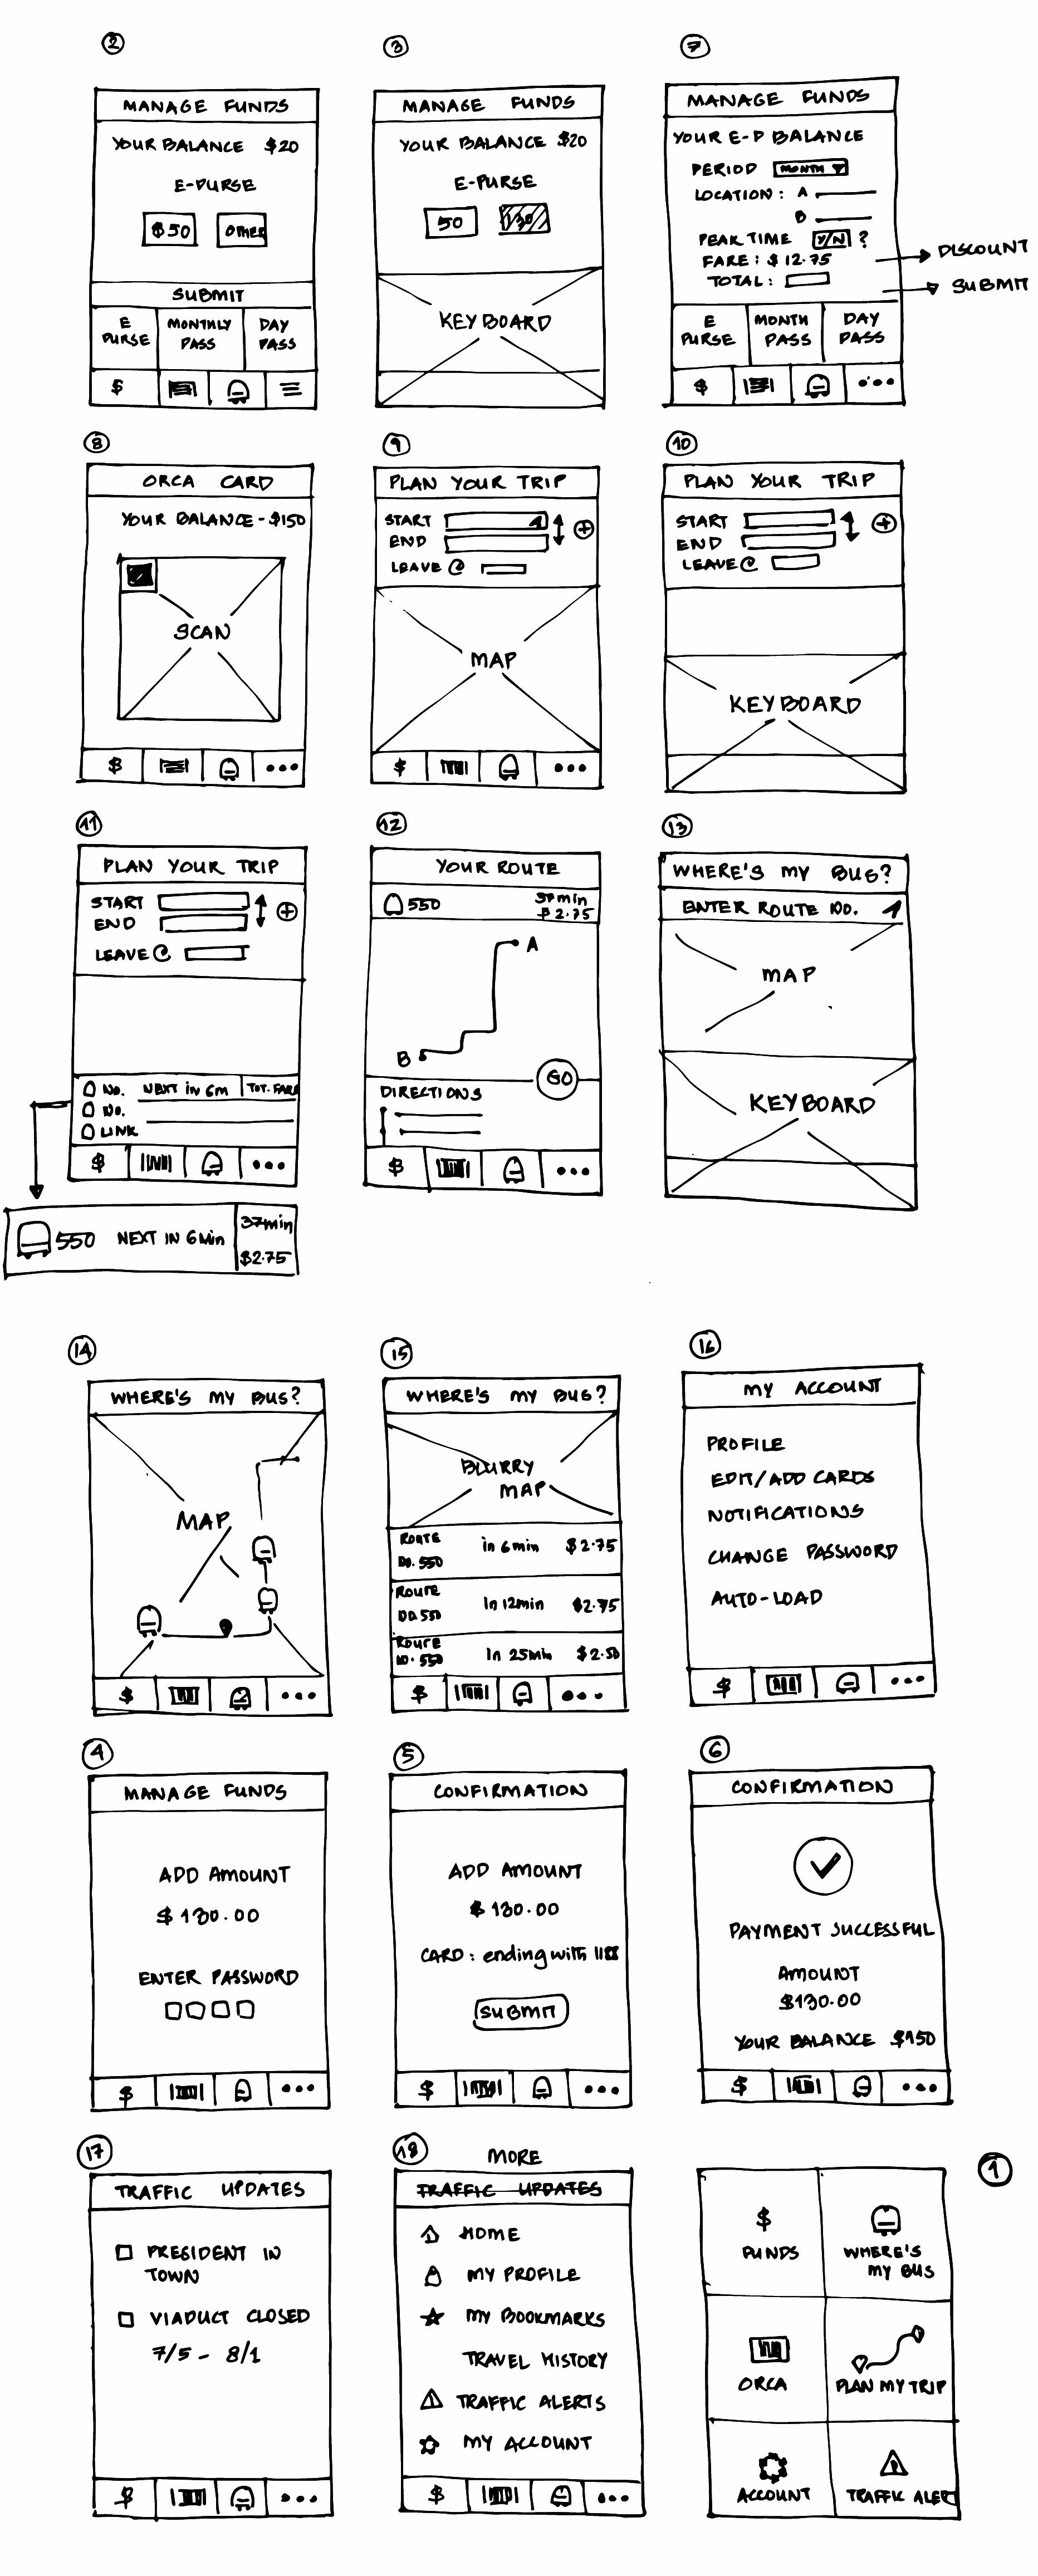 2
MANAGE FUNDS
YOUR BALANCE $20
E-PURSE
$50 OTHER
SUBMIT
E PURSE
MONTHLY PASS
DAY PASS
$
3
MANAGE FUNDS
YOUR BALANCE $20
E-PURSE
50 130
KEYBOARD
7
MANAGE FUNDS
YOUR E-P BALANCE
PERIOD MONTH
LOCATION : A
B
PEAK TIME Y/N ?
FARE : $ 12.75
TOTAL :
DISCOUNT
SUBMIT
E PURSE
MONTH PASS
DAY PASS
$
8
ORCA CARD
YOUR BALANCE - $150
SCAN
$
9
PLAN YOUR TRIP
START
END
LEAVE @
MAP
$
10
PLAN YOUR TRIP
START
END
LEAVE @
KEYBOARD
11
PLAN YOUR TRIP
START
END
LEAVE @
NO. NEXT in 6m TOT. FARE
NO.
LINK
$
550 NEXT IN 6 Min 37min
$2.75
12
YOUR ROUTE
550 37 min
$2.75
A
B
GO
DIRECTIONS
$
13
WHERE'S MY BUS?
ENTER ROUTE NO.
MAP
KEYBOARD
14
WHERE'S MY BUS?
MAP
$
15
WHERE'S MY BUS?
BLURRY
MAP
ROUTE
NO. 550 in 6min $2.75
ROUTE
NO 550 In 12min $2.75
ROUTE
NO. 550 In 25min $2.50
$
16
MY ACCOUNT
PROFILE
EDIT/ADD CARDS
NOTIFICATIONS
CHANGE PASSWORD
AUTO-LOAD
$
4
MANAGE FUNDS
ADD AMOUNT
$ 130.00
ENTER PASSWORD
$
5
CONFIRMATION
ADD AMOUNT
$ 130.00
CARD : ending with 1188
SUBMIT
$
6
CONFIRMATION
PAYMENT SUCCESSFUL
AMOUNT
$130.00
YOUR BALANCE $150
$
17
TRAFFIC UPDATES
PRESIDENT IN
TOWN
VIADUCT CLOSED
7/5 - 8/1
$
18
MORE
TRAFFIC UPDATES
HOME
MY PROFILE
MY BOOKMARKS
TRAVEL HISTORY
TRAFFIC ALERTS
MY ACCOUNT
$
1
$
FUNDS
WHERE'S
MY BUS
ORCA
PLAN MY TRIP
ACCOUNT
TRAFFIC ALERT